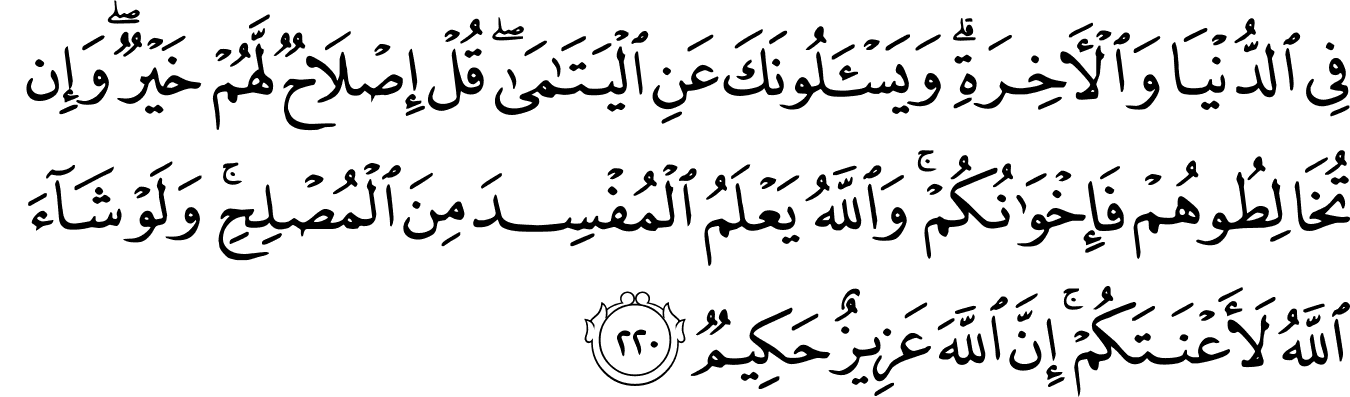 فِي ٱلدُّنۡيَا وَٱلۡأٓخِرَةِۗ وَيَسۡـَٔلُونَكَ عَنِ ٱلۡيَتَٰمَىٰۖ قُلۡ إِصۡلَاحٞ لَّهُمۡ خَيۡرٞۖ وَإِن
تُخَالِطُوهُمۡ فَإِخۡوَٰنُكُمۡۚ وَٱللَّهُ يَعۡلَمُ ٱلۡمُفۡسِدَ مِنَ ٱلۡمُصۡلِحِۚ وَلَوۡ شَآءَ
ٱللَّهُ لَأَعۡنَتَكُمۡۚ إِنَّ ٱللَّهَ عَزِيزٌ حَكِيمٞ ٢٢٠